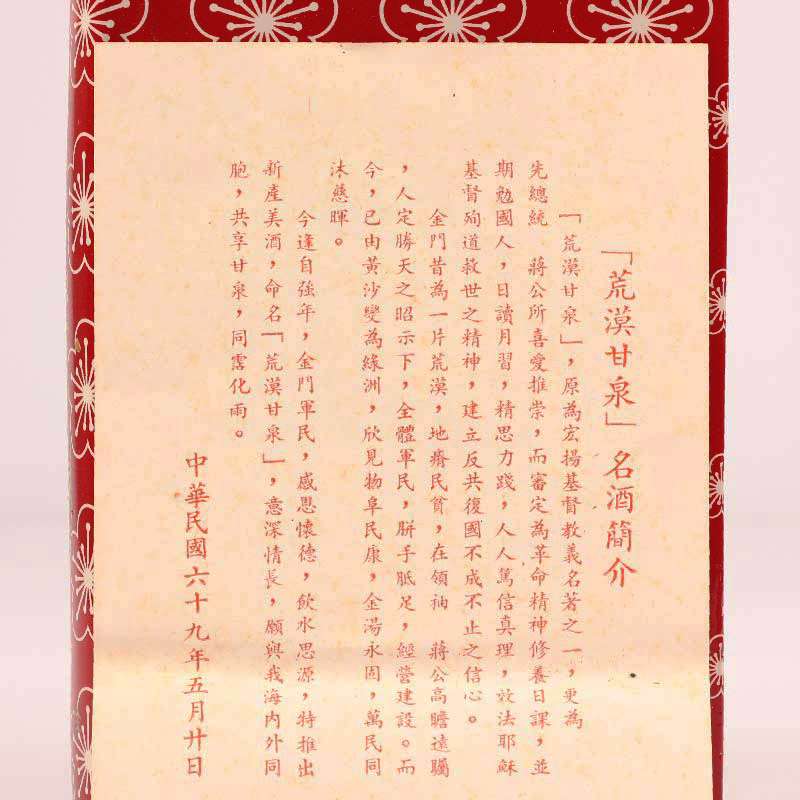 「荒漠甘泉」名酒簡介
「荒漠甘泉」，原為宏揚基督教義名著之一，更為
先總統　蔣公所喜愛推崇，而審定為革命精神修養日課，並
期勉國人，日讀月習，精思力踐，人人篤信真理，效法耶穌
基督殉道救世之精神，建立反共復國不成不止之信心。
金門昔為一片荒漠，地瘠民貧，在領袖　蔣公高瞻遠矚
，人定勝天之昭示下，全體軍民，胼手胝足，經營建設。而
今，已由黃沙變為綠洲，欣見物阜民康，金湯永固，萬民同
沐慈暉。
今逢自強年，金門軍民，感恩懷德，飲水思源，特推出
新產美酒，命名「荒漠甘泉」，意深情長，願與我海內外同
胞，共享甘泉，同霑化雨。
中華民國六十九年五月廿日